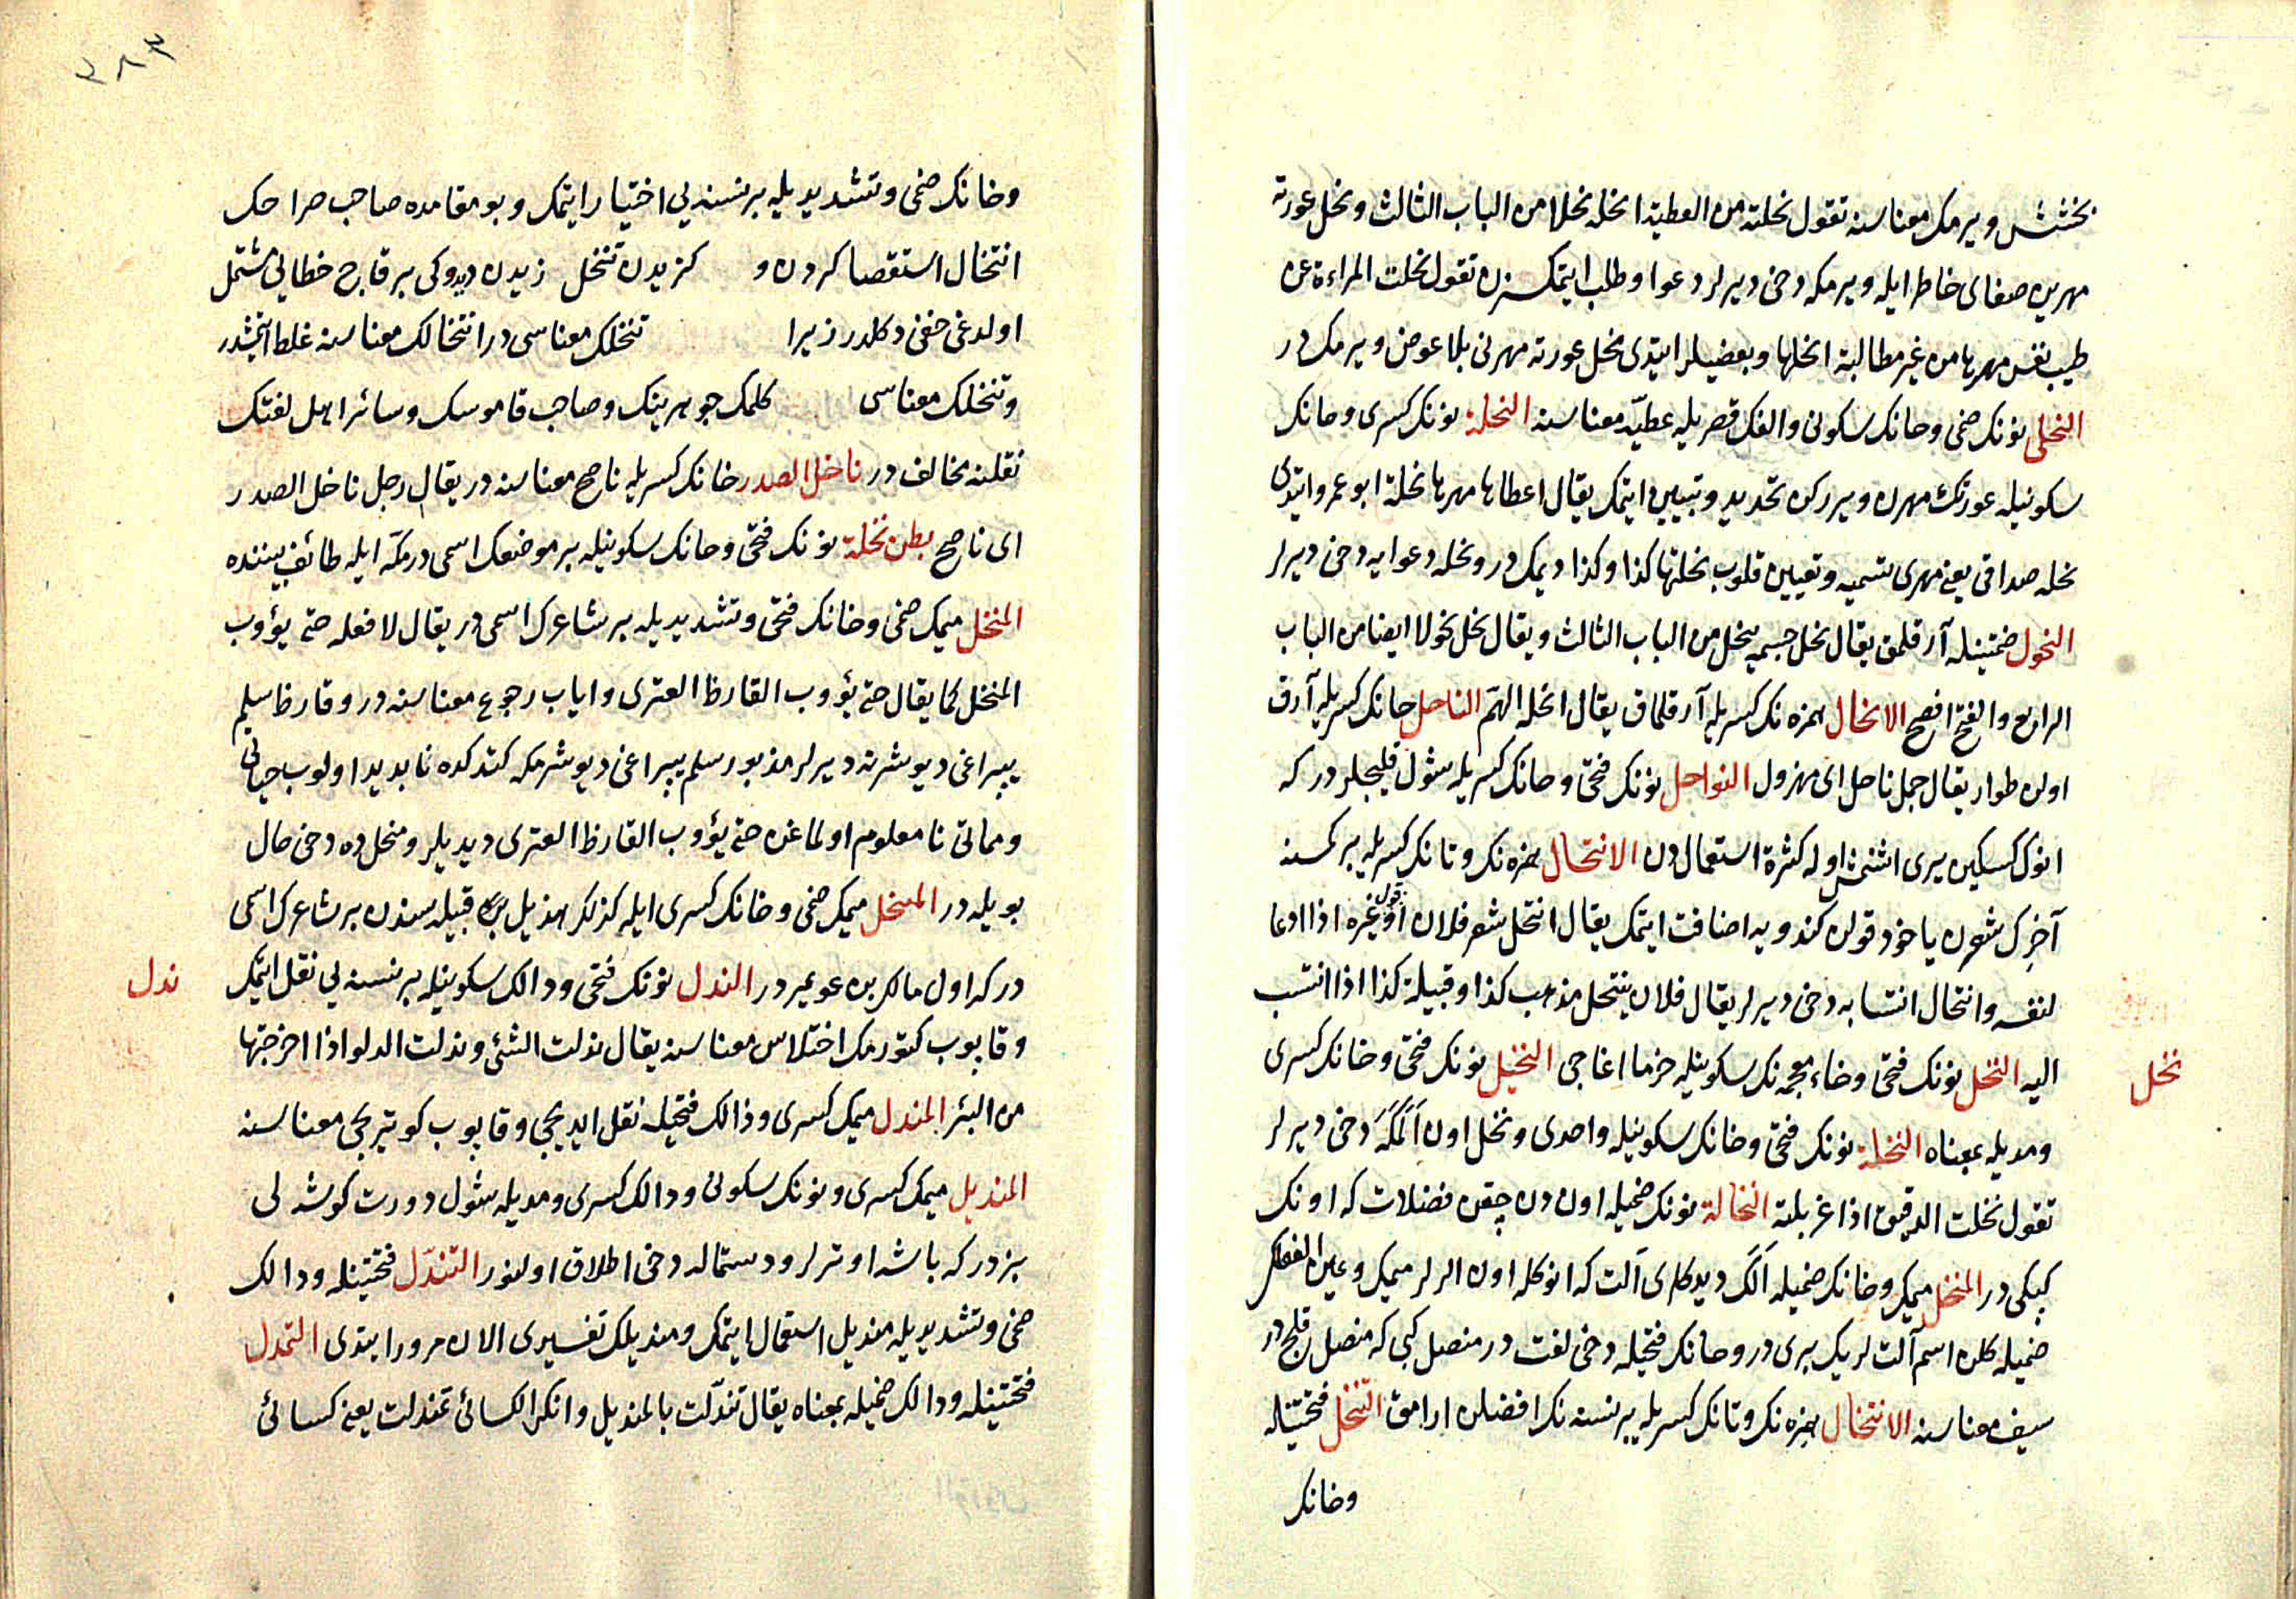 بخشش ويرمك معناسنه تقول نحلته من العطية انحله نحلا من الباب الثالث ونحل عورته
مهرين صفاى خاطر ايله ويرمكه دخى ديرلر دعوا و طلب ايتمكسزن تقول نحلت المراءة عن
طيب نفس مهرها من غير مطالبة انحلها وبعضيلر ايتدى نحل عورته مهرنى بلا عوض ويرمكدر
النحلى نونك ضمى وحانك سكونى والفك قصريله عطيّه معناسنه النحلة نونك كسرى وحانك
سكونيله عورتك مهرن ويرركن تحديد وتبيين ايتمك يقال اعطاها مهرها نحلة ابو عمرو ايتدى
نحله صداقى يعنى مهرى تسميه وتعيين قلوب نحلتها كذا وكذا ديمكدر ونحله دعوايه دخى ديرلر
النحول ضمتينله آرقلمق يقال نحل جسمه ينحل من الباب الثالث ويقال نحل نحولا ايضا من الباب
الرابع والفتح افصح الانحال همزه نك كسريله آرقلمق يقال انحله الهم الناحل حانك كسريله آرق
اولن طوار يقال جمل ناحل اى مهزول النواحل نونك فتحى وحانك كسريله شول قليجلردر كه
انوك كسكين يرى اشنمش اوله كثرة استعمالدن الانتحال همزه نك وتانك كسريله بر كمسنه
آخرك شعرن ياخود قولن كندويه اضافت ايتمك يقال انتحل شعر فلان او قول غيره اذا ادعا
لنفسه وانتحال انتسابه دخى ديرلر يقال فلان ينتحل مذهب كذا وقبيلة كذا اذا انتسب
اليه النخل نونك فتحى وخاء معجمه نك سكونيله خرما اغاجى النخيل نونك فتحى وخانك كسرى
نخل
ومديله بمعناه النخلة نونك فتحى وخانك سكونيله واحدى ونخل اون الَمَكَه دخى ديرلر
تقول نخلت الدقيق اذا غربلته النخالة نونك ضميله اوندن چقن فضلات كه اونك
كپكى در المنخل ميمك وخانك ضميله الك ديدكلرى آلت كه انوكله اون الرلر ميمك وعين الفعلك
ضميله كلن اسم آلتلريك برى در وخانك فتحيله دخى لغت در منصل كبى كه منصل قلج در
سيف معناسنه الانتخال همزه نك وتانك كسريله بر نسنه نك افضلن ارامق التنخل فتحتينله
وخانك
٣٨٣
وخانك ضمى وتشديديله بر نسنه يى اختيار ايتمك وبو مقامده صاحب صراحك
انتخال استقصا كردن و كزيدن تنخل زيدن ديدوكى بر قاچ خطايى مشتمل
اولدغى خفى دكلدر زيرا تنخلك معناسى در انتخالك معناسنه غلط ايتمشدر
وتنخلك معناسى كلمك جوهرينك وصاحب قاموسك وسائر اهل لغتك
نقلنه مخالف در ناخل الصدر خانك كسريله ناصح معناسنه در يقال رجل ناخل الصدر
اى ناصح بطن نخلة نونك فتحى وخانك سكونيله بر موضعك اسمى در مكه ايله طائف بيننده
المنخل ميمك ضمى وخانك فتحى وتشديديله بر شاعرك اسمى در يقال لا افعله حتى يؤوب
المنخل كما يقال حتى يؤوب القارظ العنزى واياب رجوع معناسنه در وقارظ سلم
يپراغى ديوشرنه ديرلر مذبور سلم يپراغى ديوشرمكه كتدكده نابديد اولوب حياتى
ومماتى نامعلوم اولماغن حتى يؤوب القارظ العنزى ديديلر ومنخل ده دخى حال
بويله در المتنخل ميمك ضمى وخانك كسرى ايله كذلك هذيل قبيله سندن بر شاعرك اسمى
دركه اول مالك بن عويمر در الندل نونك فتحى ودالك سكونيله بر نسنه يى نقل ايتمك
ندل
وقاپوب كتورمك اختلاس معناسنه يقال ندلت الشئ وندلت الدلو اذا اخرجتها
من البئر المندل ميمك كسرى ودالك فتحيله نقل ايديجى وقاپوب كوتريجى معناسنه
المنديل ميمك كسرى ونونك سكونى ودالك كسرى ومديله شول دورت كوشه لى
بزدركه باشه اوترلر ودستماله دخى اطلاق اولنور التندّل فتحتينله ودالك
ضمى وتشديديله منديل استعمال ايتمك ومنديلك تفسيرى الان مرور ايتدى التمندل
فتحتينله ودالك ضميله بمعناه يقال تندّلت بالمنديل وانكر الكسائى تمندلت يعنى كسائى